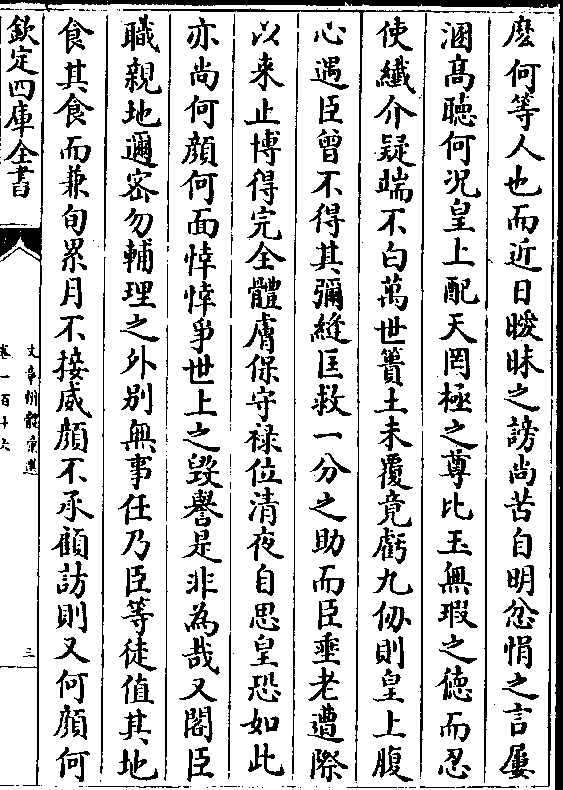 麽何等人也而近日曖昧之謗尚苦自明忿悁之言屢
溷高聽何況皇上配天罔極之尊比玉無瑕之徳而忍
使纖介疑端不白萬世簣土未覆竟虧九仞則皇上腹
心遇臣曾不得其彌縫匡救一分之助而臣垂老遭際
以来止博得完全體膚保守禄位清夜自思皇恐如此
亦尚何顔何面悻悻爭世上之毁譽是非為哉又閣臣
職親地邇密勿輔理之外別無事任乃臣等徒值其地
食其食而兼旬累月不接威顔不承顧訪則又何顔何
欽定四庫全書
文章辨體彚選
卷一百十六
三